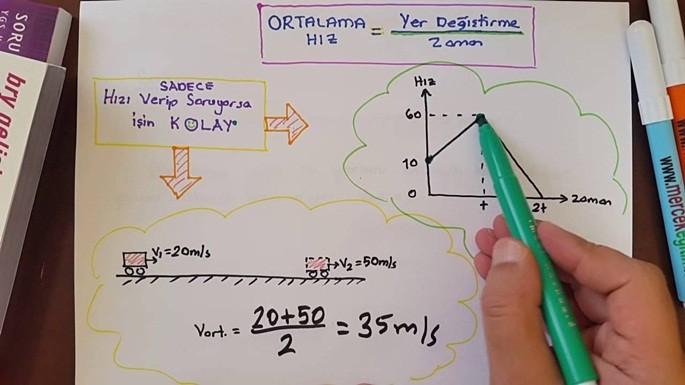 SORU
bry
ORTALAMA HIZ = Yer Değiştirme
Zaman
SADECE
Hızı Verip Soruyorsa
işin KOLAY
Hız
60
10
0
t
2t
zaman
V₁=20m/s
V₂=50m/s
Vort. = 20+50 = 35m/s
2
www.mercek
www.mercekeğitim